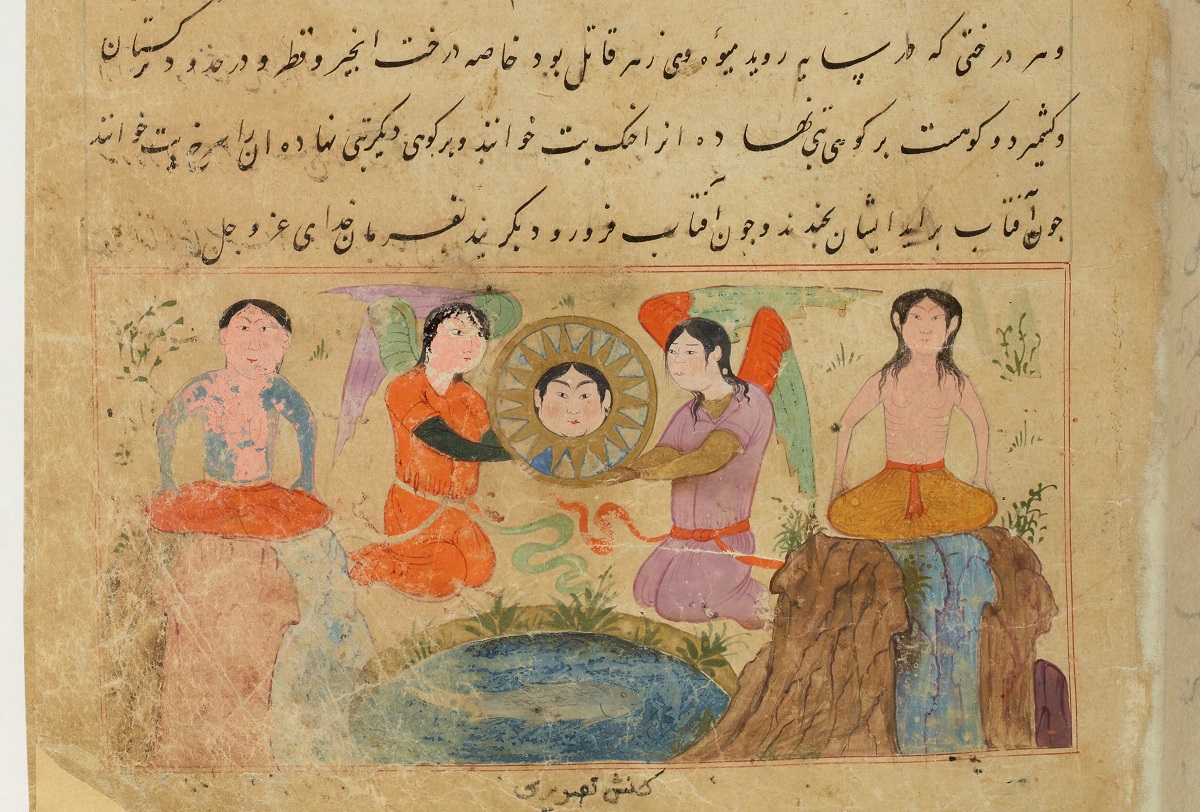 و هر درختی که در سایه روید میوهٔ وی زهر قاتل بود خاصه درخت انجیر و در حدود ترکستان
و کشمیر دو کوهست بر کوهی بتی نهاده انرا خنک بت خوانند و بر کوهی دیگر بتی نهاده ان را سرخ بت خوانند
جون آفتاب براید ایشان بخندند و جون آفتاب فرو رود بگریند بفرمان خدای عز و جل